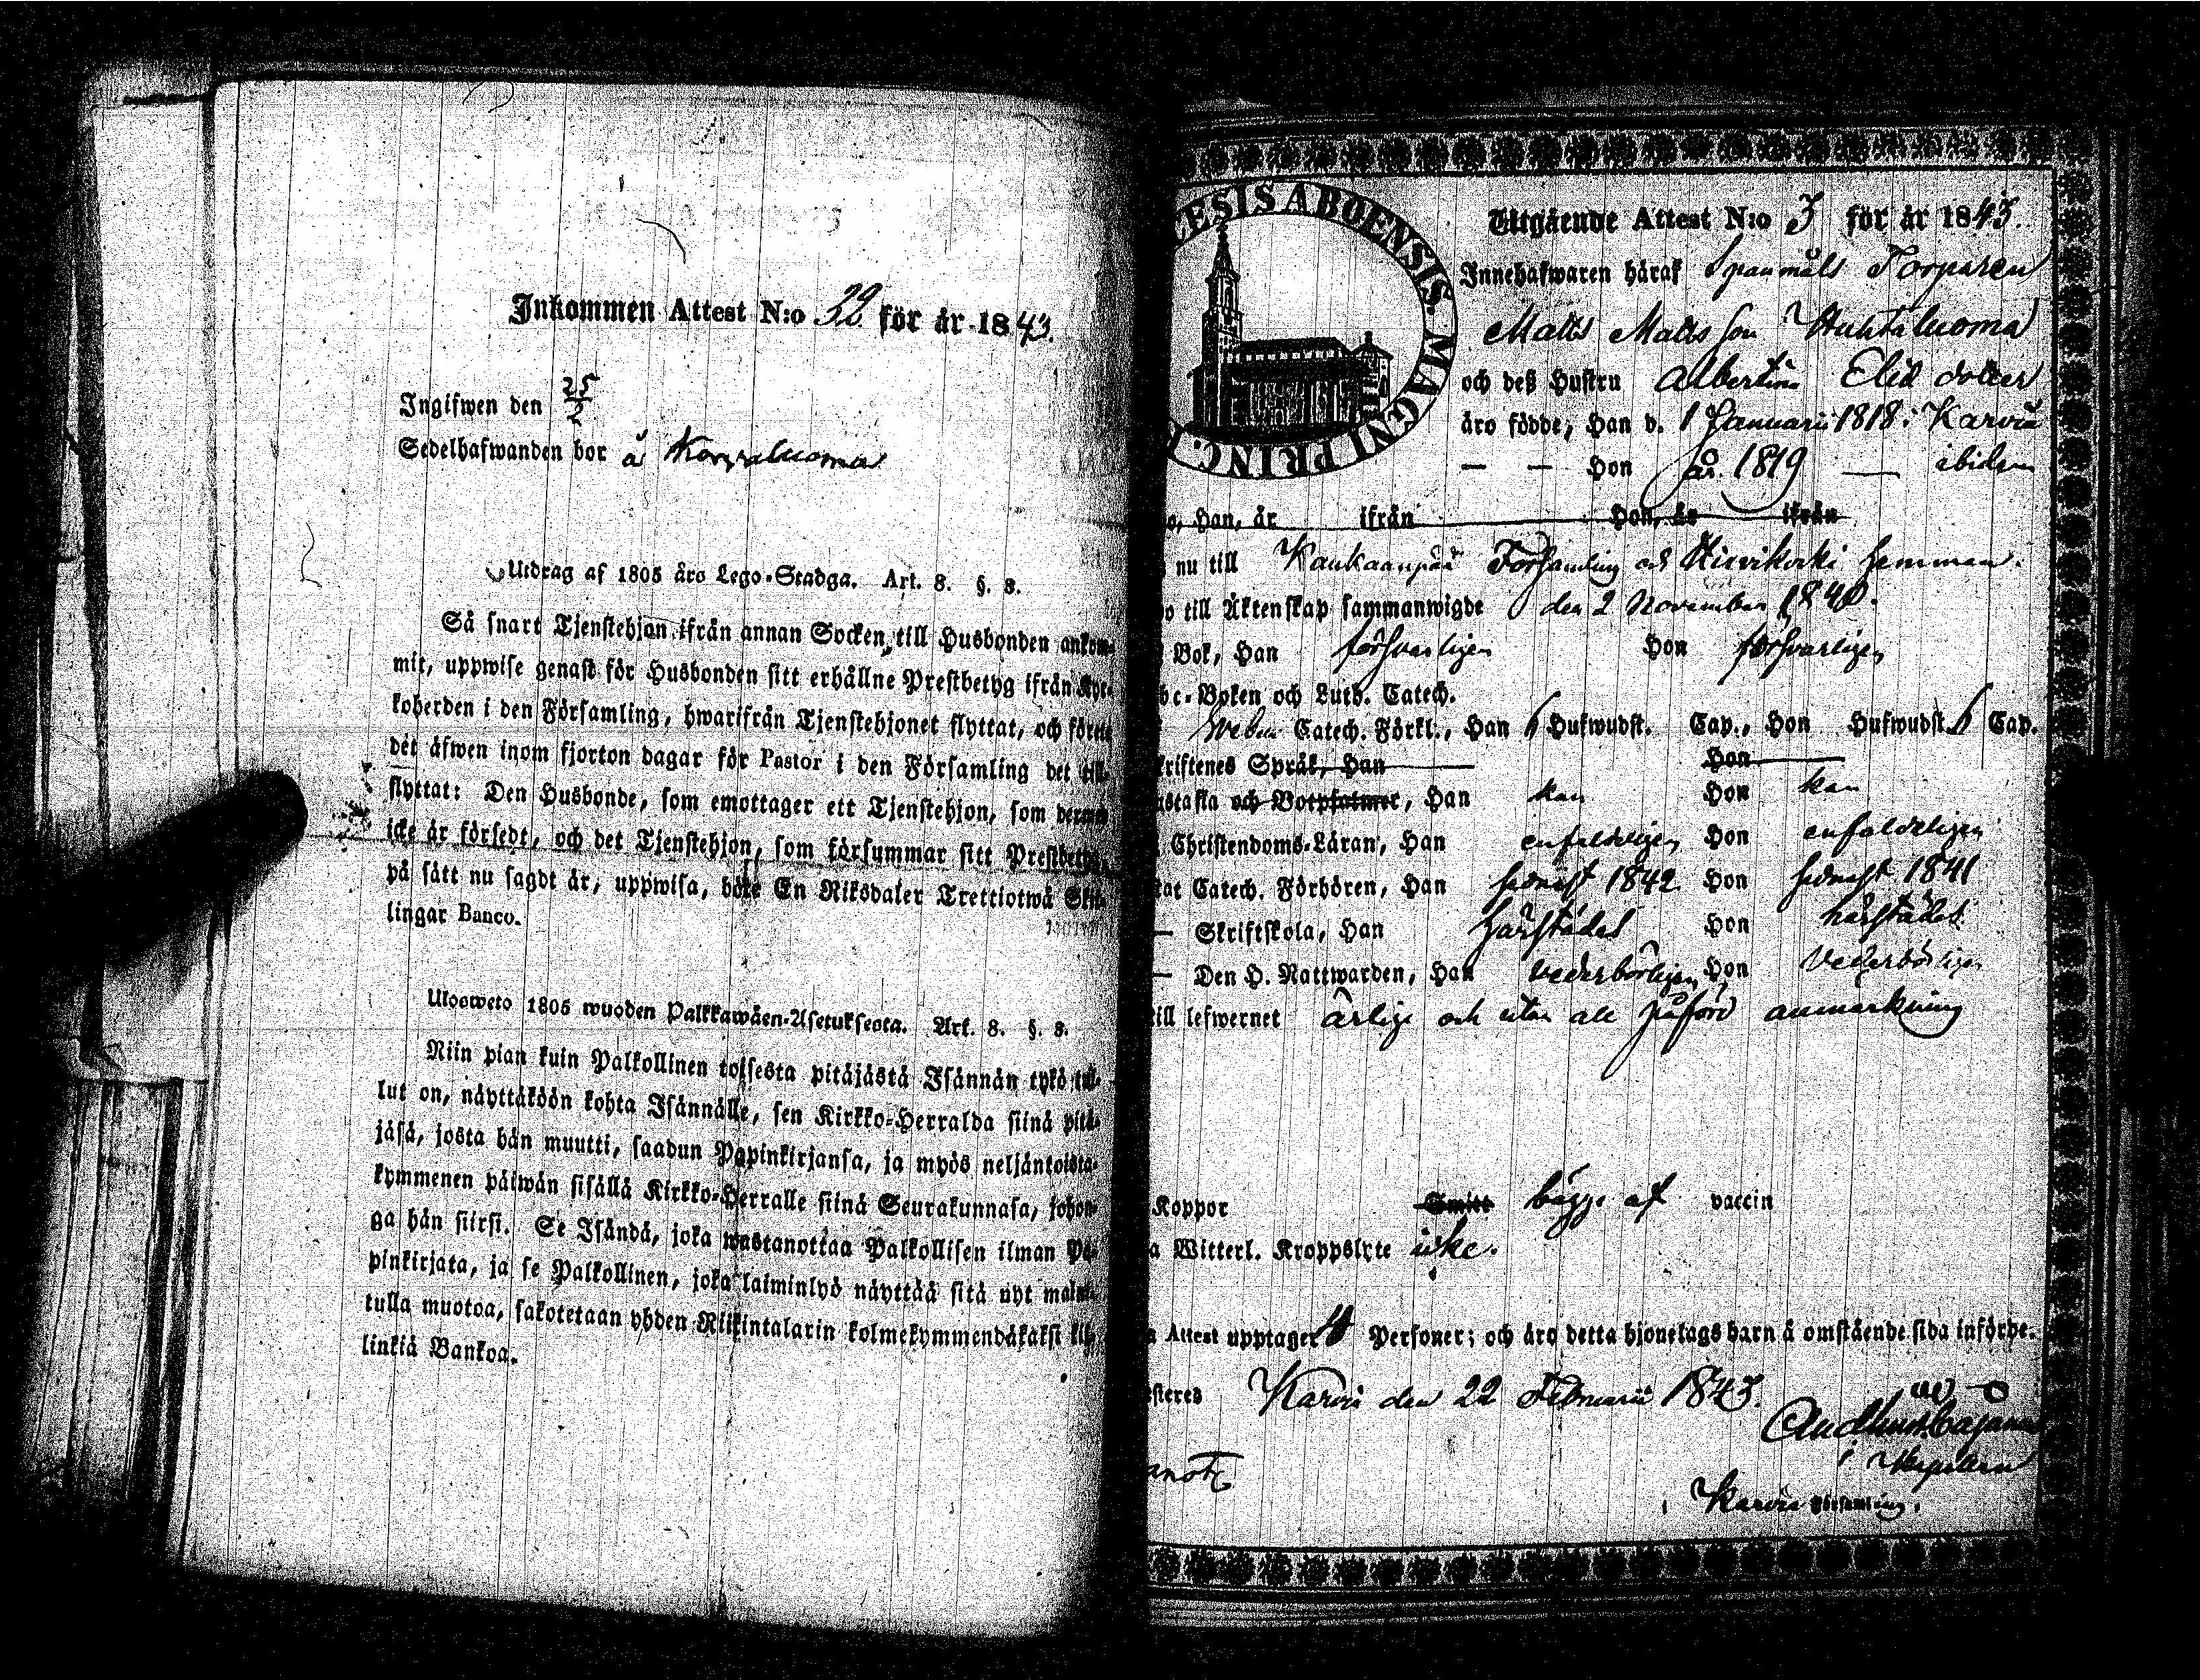 Inkommen Attest N:o 32 för år 1843.
Ingifwen den 25/2
Sedelhafwanden bor å
Utdrag af 1805 års Lego-Stadga. Art. 8. §. 8.
Så snart Tjenstehjon ifrån annan Socken, till Husbonden ankom-
mit, uppwise genast för Husbonden sitt erhållne Prestbetyg ifrån Kyr-
koherden i den Församling, hwarifrån Tjenstehjonet flyttat, och förete
det äfwen inom fjorton dagar för Pastor i den Församling det till-
flyttat: Den Husbonde, som emottager ett Tjenstehjon, som dermed
icke är försedt, och det Tjenstehjon, som försummar sitt Prestbetyg,
på sätt nu sagdt är, uppwisa, böte En Riksdaler Trettiotwå Skil-
lingar Banco.
Ulosweto 1805 wuoden Palkkawäen-Asetuksesta. Art. 8. §. 8.
Niin pian kuin Palkollinen toisesta pitäjästä Isännän tykö tul-
lut on, näyttäköön kohta Isännälle, sen Kirkko-Herralda siinä pitä-
jäsä, josta hän muutti, saadun Papinkirjansa, ja myös neljäntoista-
kymmenen päiwän sisällä Kirkko-Herralle siinä Seurakunnasa, johon-
ga hän siirsi. Se Isändä, joka wastanottaa Palkollisen ilman Pa-
pinkirjata, ja se Palkollinen, joka laiminlyö näyttää sitä nyt mainit-
tulla muotoa, sakotetaan yhden Riikintalarin kolmekymmendäkaksi kil-
linkiä Bankoa.
ESIS ABOENSIS. MAGNI PRINC.
Utgående Attest N:o 3 för år 1843.
Innehafwaren häraf Spanmåls Torparen
Matts Matts Son Huhtaluoma
och deß Hustru Albertina Elia dotter
äro födde, Han d. 1 Januarii 1818 i Karvia
— — Hon år 1819 — ibidem
Han, år ifrån Hon, år ifrån
nu till Kankaanpää Församling och hemman.
till Äktenskap sammanwigde den 2 November 1840.
Bok, Han försvarligen Hon försvarligen
bc-Boken och Luth. Catech.
Catech. Förkl., Han 6 Hufwudst. Cap., Hon Hufwudst. 6 Cap.
kriftenes Språk, Han Hon
stafla och Botpsalmer, Han kan Hon kan
Christendoms-Läran, Han enfaldeligen Hon enfaldeligen
tat Catech. Förhören, Han senast 1842 Hon senast 1841
— Skriftskola, Han härstädes Hon härstädes
— Den H. Nattwarden, Han vederbörligen Hon vederbörligen
till lefwernet ärlige och utan all påförd anmärkning
Koppor Smitt bägge af vaccin
a Witterl. Kroppslyte icke.
Attest upptager 4 Personer; och äro detta hjonelags barn å omstående sida införde.
esteres Karvia den 22 Februarii 1843.
And. Lindr. Cajanus
i
Karvia Församling.